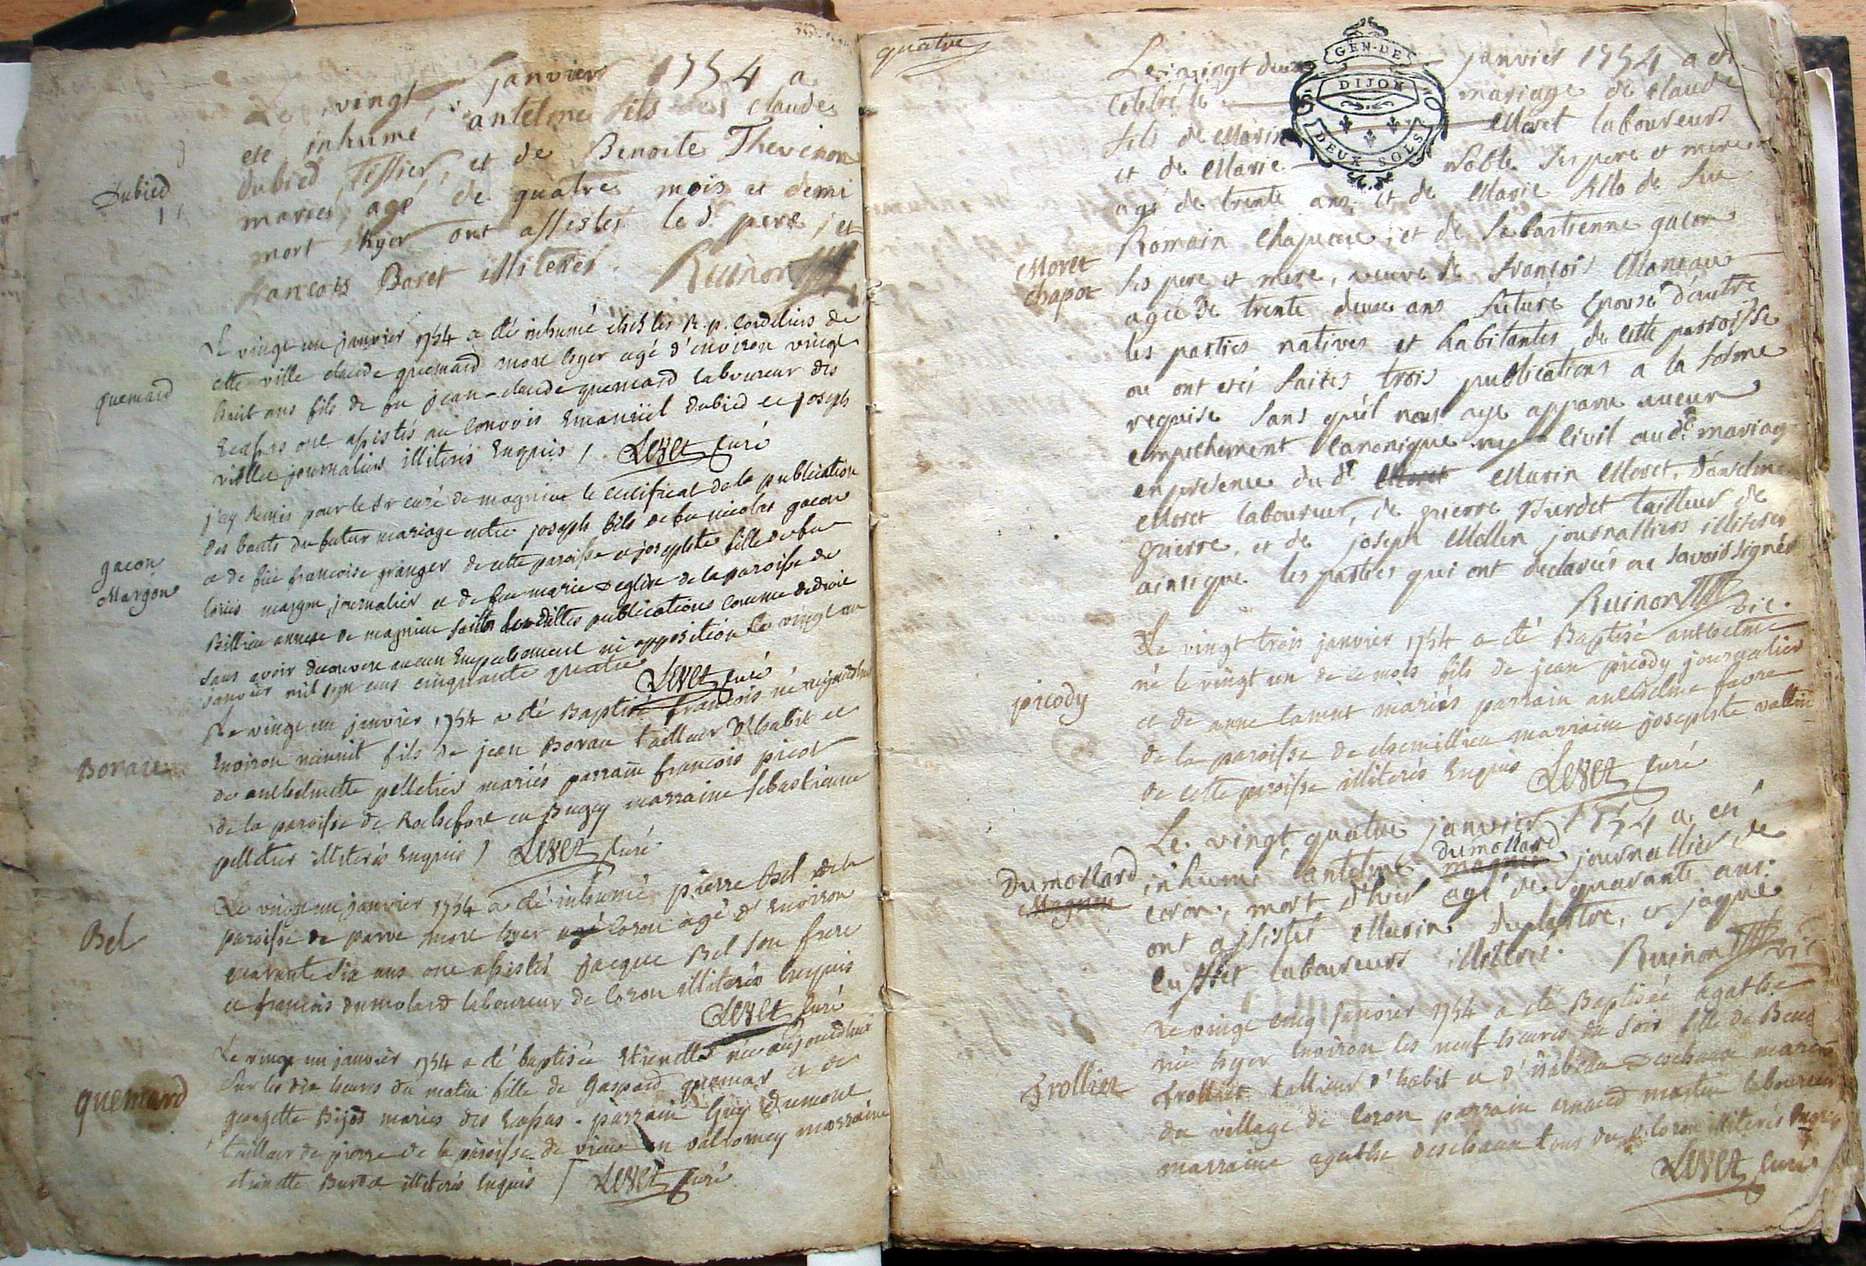 Le vingt janvier 1754 a
ete inhumé antelme fils de claude
dubied Tissier, et de Benoite Thevenon
mariés, agé de quatre mois et demi
mort hyer ont assistes le d. pere, et
françois Baret illiterés. Ruinon
Dubied
Le vingt un janvier 1754 a été inhumé chés les R. p. Cordeliers de
cette ville claude quemard mort hyer agé d'environ vingt
huit ans fils de feu jean-claude quemard laboureur des
Ecassas ont assistés au convois Emanuel dubied et joseph
journaliers illiterés Enquis / Levet curé
quemard
j'ay remis pour le Sr curé de magnieu le certificat de la publication
des bants du futur mariage entre joseph fils de feu nicolas gacon
et de feüe francoise granger de cette paroisse et josephte fille de feu
Loüis margon journalier et de feu marie deglise de la paroisse de
Billieu annexe de magnieu faites lesdittes publications comme de droit
sans avoir decouvert aucun Empechement ni opposition le vingt un
janvier mil sept cens cinquante quatre Levet curé
gacon
Margon
Le vingt un janvier 1754 a été Baptisé francois né aujourdhui
Environ minuit fils de jean Boraux tailleur d'habit et
de anthelmette pelletier mariés parrain francois picot
de la paroisse de Rochefort en Bugey marraine sebastienne
pelletier illiterés Enquis / Levet curé
Le vingt un janvier 1754 a été inhumé pierre Bel de la
paroisse de parve mort hyer a Coron agé d'Environ
quarante six ans ont assistés jacque Bel son frere
et francois dumolard laboureur de Coron illiterés Enquis
Levet curé
Bel
Le vingt un janvier 1754 a été baptisée Etiennette née aujourdhui
sur les dix heures du matin fille de Gaspard quemar et de
georgette Bijod mariés des Ecassas. parrain Guy dumont
tailleur de pierre de la paroisse de vieu en valromey marraine
etiennette Burdet illiterés Enquis / Levet curé
quemard
quatre
GEN. DE
DIJON
DEUX SOLS
Le vingt deux janvier 1754 a eté
Celebré le mariage de Claude
fils de Marin Moret laboureurs
et de Marie Noble ses pere et mere
agé de trente ans, et de Marie fille de feu
Romain Chapuce, et de Sebastienne gacon
ses pere et mere, veuve de françois Maneau
agée de trente deux ans future Epouse d'autre
les parties natives et habitantes de cette parroisse
ou ont etés faites trois publications a la forme
requise sans qu'il nous aye apparu aucun
empechement canonique ny civil aud. mariage
en presence du dt Moret Marin Moret, d'antelme
Moret laboureur, de pierre Burdet tailleur de
pierre, et de joseph Mollin journalliers illiterés
ainsi que les parties qui ont declarés ne savoir signer
Ruinon vic.
Moret
chapot
Le vingt trois janvier 1754 a été Baptisé anthelme
né le vingt un de ce mois fils de jean picody journalier
et de anne Camut mariés parrain anthelme favre
de la paroisse de chemillieu marraine josephte vallin
de cette paroisse illiterés Enquis Levet curé
picody
Le vingt quatre janvier 1754 a eté
inhumé antelme magnin dumollard journallier, de
coron, mort d'hier agé de quarante ans.
ont assistes Marin duplastre, et jaque
Cusset laboureurs illiteres. Ruinon vic
Dumollard
Magnin
Le vingt cinq janvier 1754 a été Baptisée agathe
née hyer Environ les neuf heures du soir fille de Benoit
Trollier tailleur d'habit et d'isabeau deschaux mariés
du village de Coron parrain arnaud martin laboureur
marraine agathe deschaux tous de Coron illiterés Enquis
Levet curé
Trollier